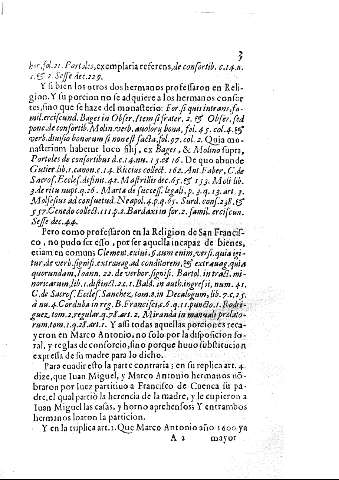 3
ber, fol. 21. Portoles, exemplaria referens, de consortib. c. 14. n.
1. & 2. Sesse dec. 229.
Y si bien los otros dos hermanos professaron en Reli-
gion. Y su porcion no se adquiere a los hermanos consor
tes, sino que se haze del monasterio: For. si quis intrans, fa-
mil. erciscund. Bages in Obser. Item si frater, 2. & Obser. sed
pone de consortib. Molin. verb. auolory bona, fol. 45. col. 4. &
verb. diuiso bonorum si non est facta, fol. 97. col. 2. Quia mo-
nasterium habetur loco filij, ex Bages, & Molino supra,
Portoles de consortibus d. c. 14. nu. 15. & 16. De quo abunde
Gutier. lib. 1. canon. c. 14. Riccius collect. 162. Ant. Faber, C. de
Sacros. Eccles. defini. 42. Mastrillis dec. 65. & 153. Molf. lib.
3. de ritu nupt. q. 26. Marta de success. legali, p. 3. q. 13. art. 3.
Molfesius ad consuetud. Neapol. 4. p. q. 65. Surd. cons. 238. &
557. Cenedo collect. 111. p. 2. Bardaxi in for. 2. famil. erciscun.
Sesse dec. 44.
Pero como professaron en la Religion de San Francis-
co, no pudo ser esso, por ser aquella incapaz de bienes,
etiam en comun: Clement. exiui. §. cum enim, vers. quia igi-
tur, de verb. signifi. extrauag. ad conditorem, & extrauag. quia
quorundam, Ioann. 22. de verbor. signifi. Bartol. in tract. mi-
noricarum, lib. 1. distinct. 2. c. 1. Bald. in auth. ingressi, num. 41.
C. de Sacros. Eccles. Sanchez, tom. 2. in Decalogum, lib. 7. c. 25.
à nu. 4. Corduba in reg. B. Francisci, c. 6. q. 11. puncto. 1. Rodri-
guez, tom. 2. regular. q. 78. art. 2. Miranda in manuali prelato-
rum, tom. 1. q. 28. art. 1. Y assi todas aquellas porciones reca-
yeron en Marco Antonio, no solo por la disposicion fo-
ral, y reglas de consorcio, sino porque huuo substitucion
expressa de su madre para lo dicho.
Para euadir esto la parte contraria; en su replica art. 4.
dize, que Iuan Miguel, y Marco Antonio hermanos nõ-
braron por Iuez partitiuo a Francisco de Cuenca su pa-
dre, el qual partiò la herencia de la madre, y le cupieron a
Iuan Miguel las casas, y horno aprehensos: Y entrambos
hermanos loaron la particion.
Y en la triplica art. 1. Que Marco Antonio año 1600 ya
A 2 mayor